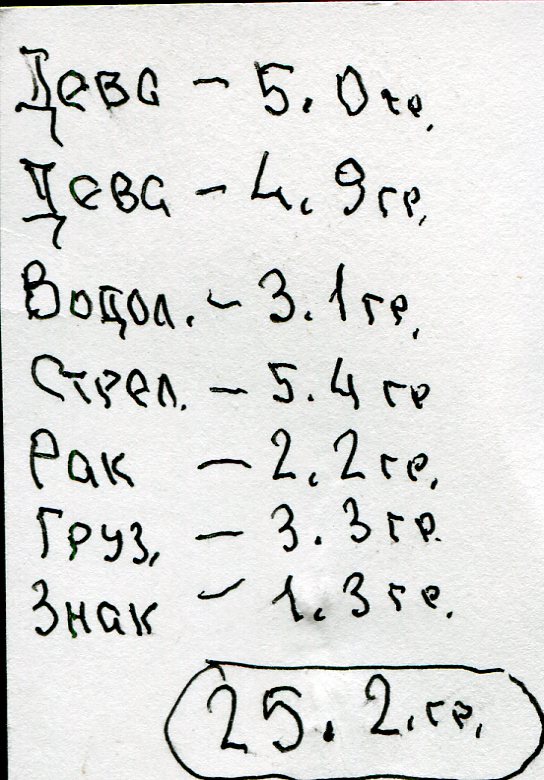 Дева - 5.0 гр.
Дева - 4.9 гр.
Водол. - 3.1 гр.
Стрел. - 5.4 гр
Рак - 2.2 гр.
Груз. - 3.3 гр.
Знак - 1.3 гр.
25.2. гр.